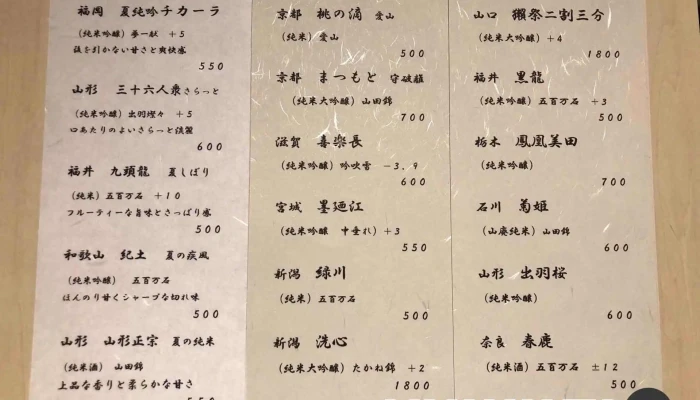 福岡 夏純吟チカーラ
(純米吟醸) 夢一献 +5
後を引かない甘さと爽快感
550
山形 三十六人衆 さらっと
(純米吟醸) 出羽燦々 +5
口あたりのよいさらっと淡麗
600
福井 九頭龍 夏しぼり
(純米) 五百万石 +10
フルーティーな旨味とさっぱり感
500
和歌山 紀土 夏の疾風
(純米吟醸) 五百万石
ほんのり甘くシャープな切れ味
500
山形 山形正宗 夏の純米
(純米酒) 山田錦
上品な香りと柔らかな甘さ
京都 桃の滴 愛山
(純米) 愛山
500
京都 まつもと 守破離
(純米大吟醸) 山田錦
700
滋賀 喜楽長
(純米吟醸) 吟吹雪 -3.9
600
宮城 墨廼江
(純米吟醸 中垂れ) +3
550
新潟 緑川
(純米) 五百万石
500
新潟 洗心
(純米大吟醸) たかね錦 +2
1800
山口 獺祭二割三分
(純米大吟醸) +4
1800
福井 黒龍
(純米吟醸) 五百万石 +3
500
栃木 鳳凰美田
(純米吟醸)
700
石川 菊姫
(山廃純米) 山田錦
600
山形 出羽桜
(純米吟醸)
600
奈良 春鹿
(純米酒) 五百万石 ±12
500